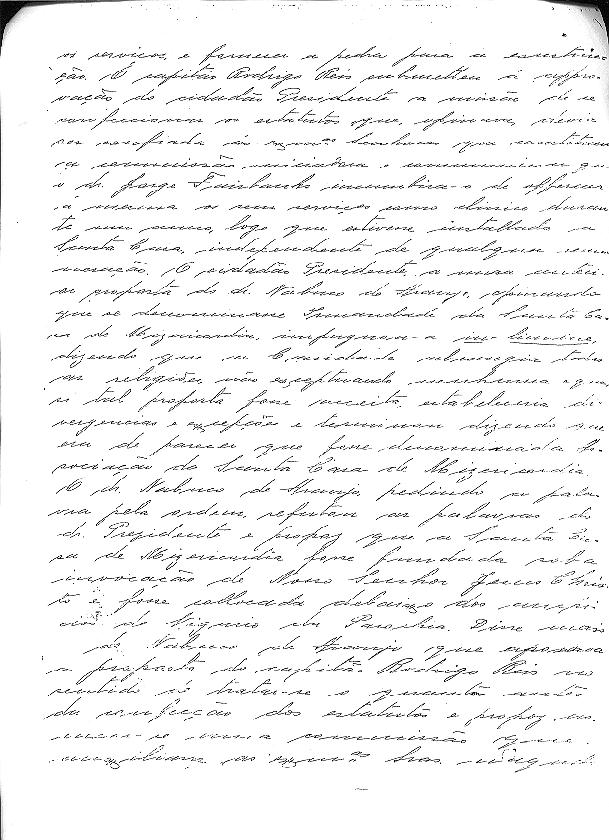 os serviços, e fornecer a pedra para a construc-
ção. O capitão Rodrigo Reis submetteu á appro-
vação do cidadão Presidente a missão de se
confeccionar os estatutos que, opinava, devia
ser confiada ás exmas. senhoras que constituem
a commissão iniciadora e communicou que
o dr. Jorge Fairbanks incumbira-o de offerecer
á mesma os seus serviços como clinico duran-
te um anno, logo que estivesse installada a
Santa Casa, independente de qualquer remu-
neração. O cidadão Presidente, a
proposta do dr. Nabuco de Araujo, opinando
que se denominasse Irmandade da Santa Ca-
sa de Mizericordia, impugnou-a in limine,
dizendo que a Caridade abrangia todas
as religiões, não exceptuando nenhuma e que
si tal proposta fosse acceita, estabeleceria di-
vergencias e excepções e terminou dizendo que
era de parecer que fosse denominada As-
sociação da Santa Casa de Mizericordia.
O dr. Nabuco de Araujo, pedindo a pala-
vra pela ordem, refutou as palavras do
dr. Prezidente e propoz que a Santa Ca-
sa de Mizericordia fosse fundada sob a
invocação de Nosso Senhor Jesus Chris-
to e fosse collocada debaixo dos auspi-
cios do Vigario da Parochia. Disse mais
dr. Nabuco de Araujo que apoiava
a proposta do capitão Rodrigo Reis no
sentido de tratar-se o quanto antes
da confecção dos estatutos e propoz no-
measse-se uma commissão que
auxiliasse as exmas. sras.